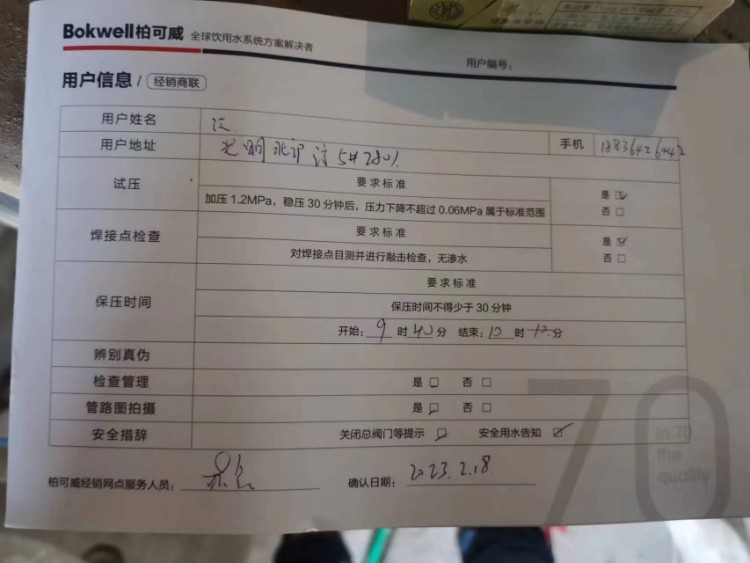 Bokwell柏可威 全球饮用水系统方案解决者
用户编号：
用户信息 / 经销商联
用户姓名 汪
用户地址 手机 18836426442
试压 要求标准
加压 1.2MPa，稳压 30 分钟后，压力下降不超过 0.06MPa 属于标准范围
是 ☑
否 □
焊接点检查 要求标准
对焊接点目测并进行敲击检查，无渗水
是 ☑
否 □
保压时间 要求标准
保压时间不得少于 30 分钟
开始：9 时 40 分 结束：10 时 12 分
辨别真伪
检查管理 是 □ 否 □
管路图拍摄 是 □ 否 □
安全措辞 关闭总阀门等提示 □ 安全用水告知 ☑
70
In 70
the
quality
柏可威经销网点服务人员：
确认日期：2023.2.18